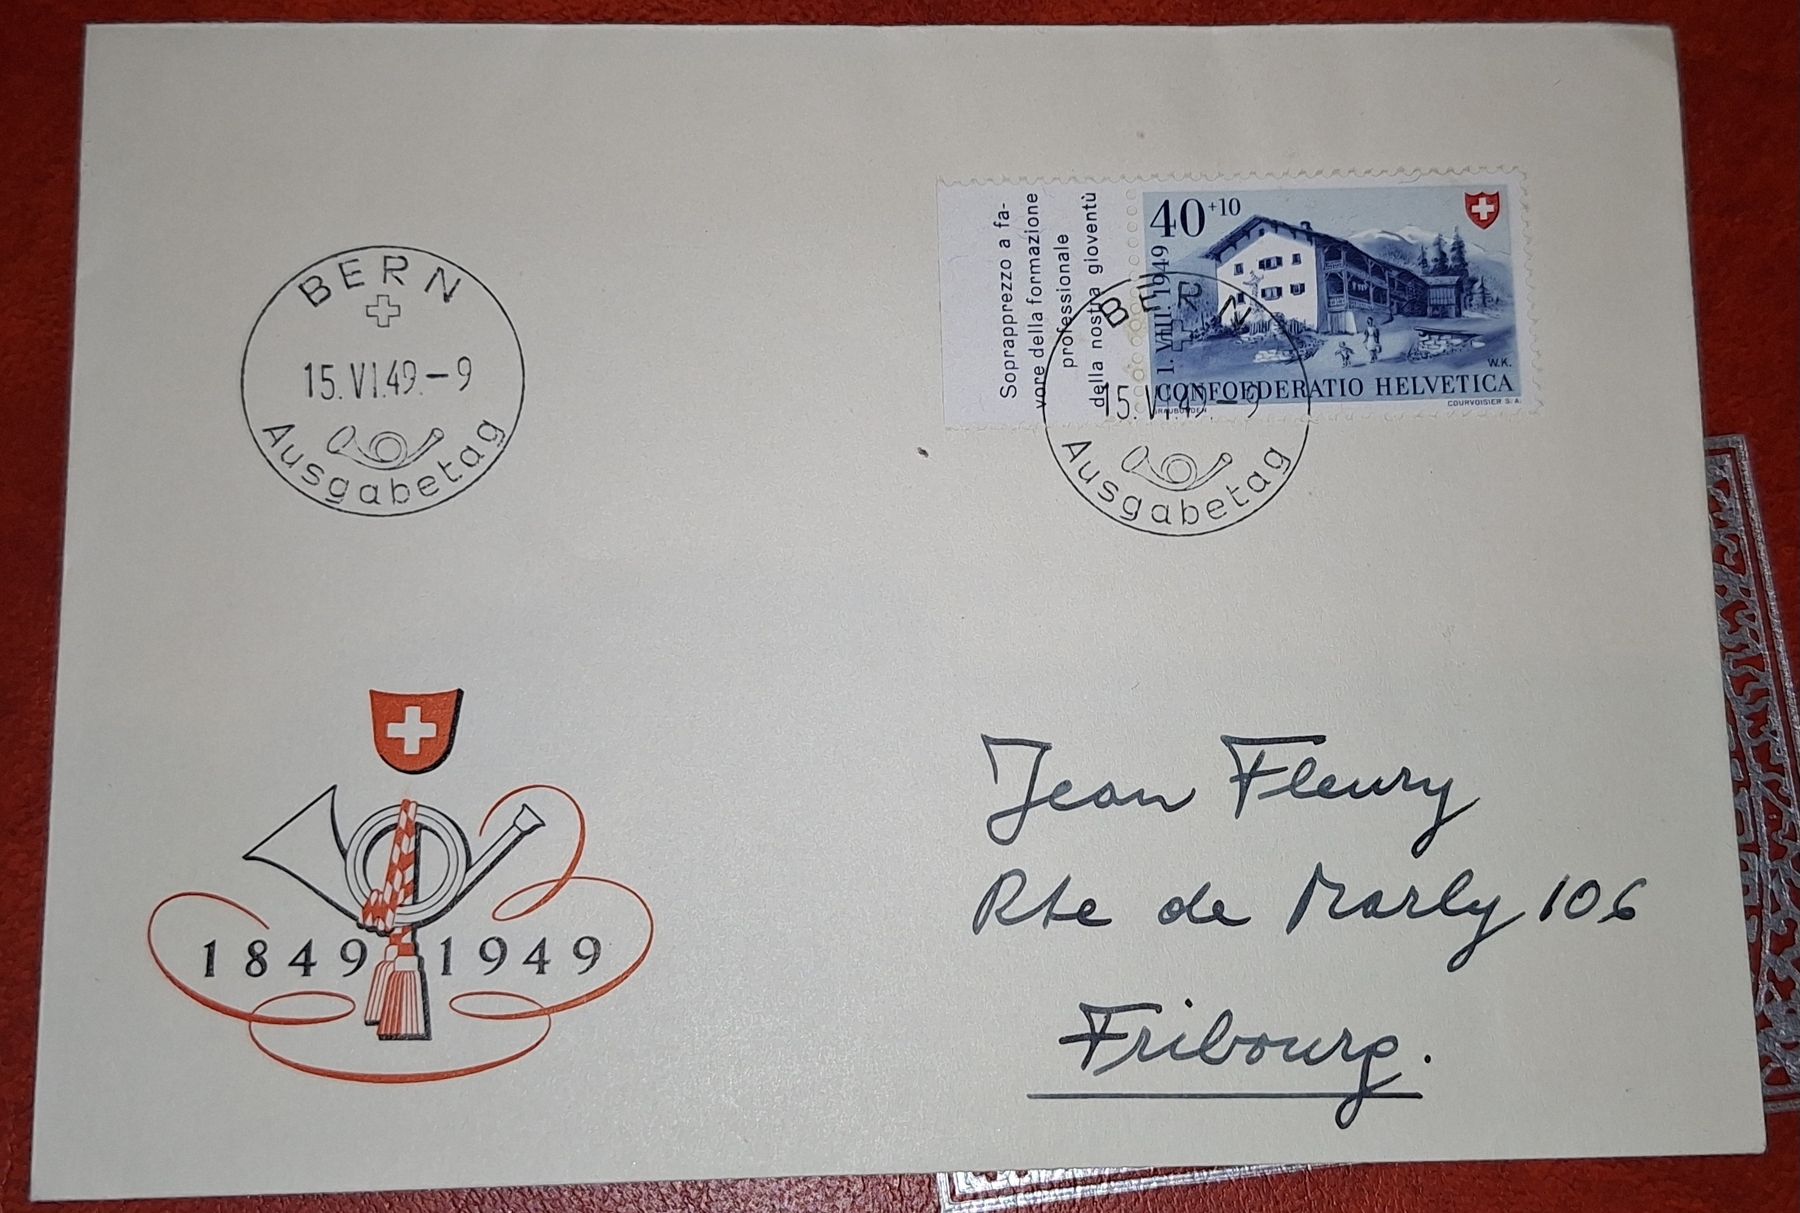 BERN
15.VI.49.–9
Ausgabetag
Soprapprezzo a fa-
vore della formazione
professionale
della nostra gioventù
40+10
1. VIII. 1949
W.K.
CONFOEDERATIO HELVETICA
GRAUBÜNDEN
COURVOISIER S/A.
BERN
15.VI.49.–9
Ausgabetag
1849 1949
Jean Fleury
Rte de Marly 106
Fribourg.